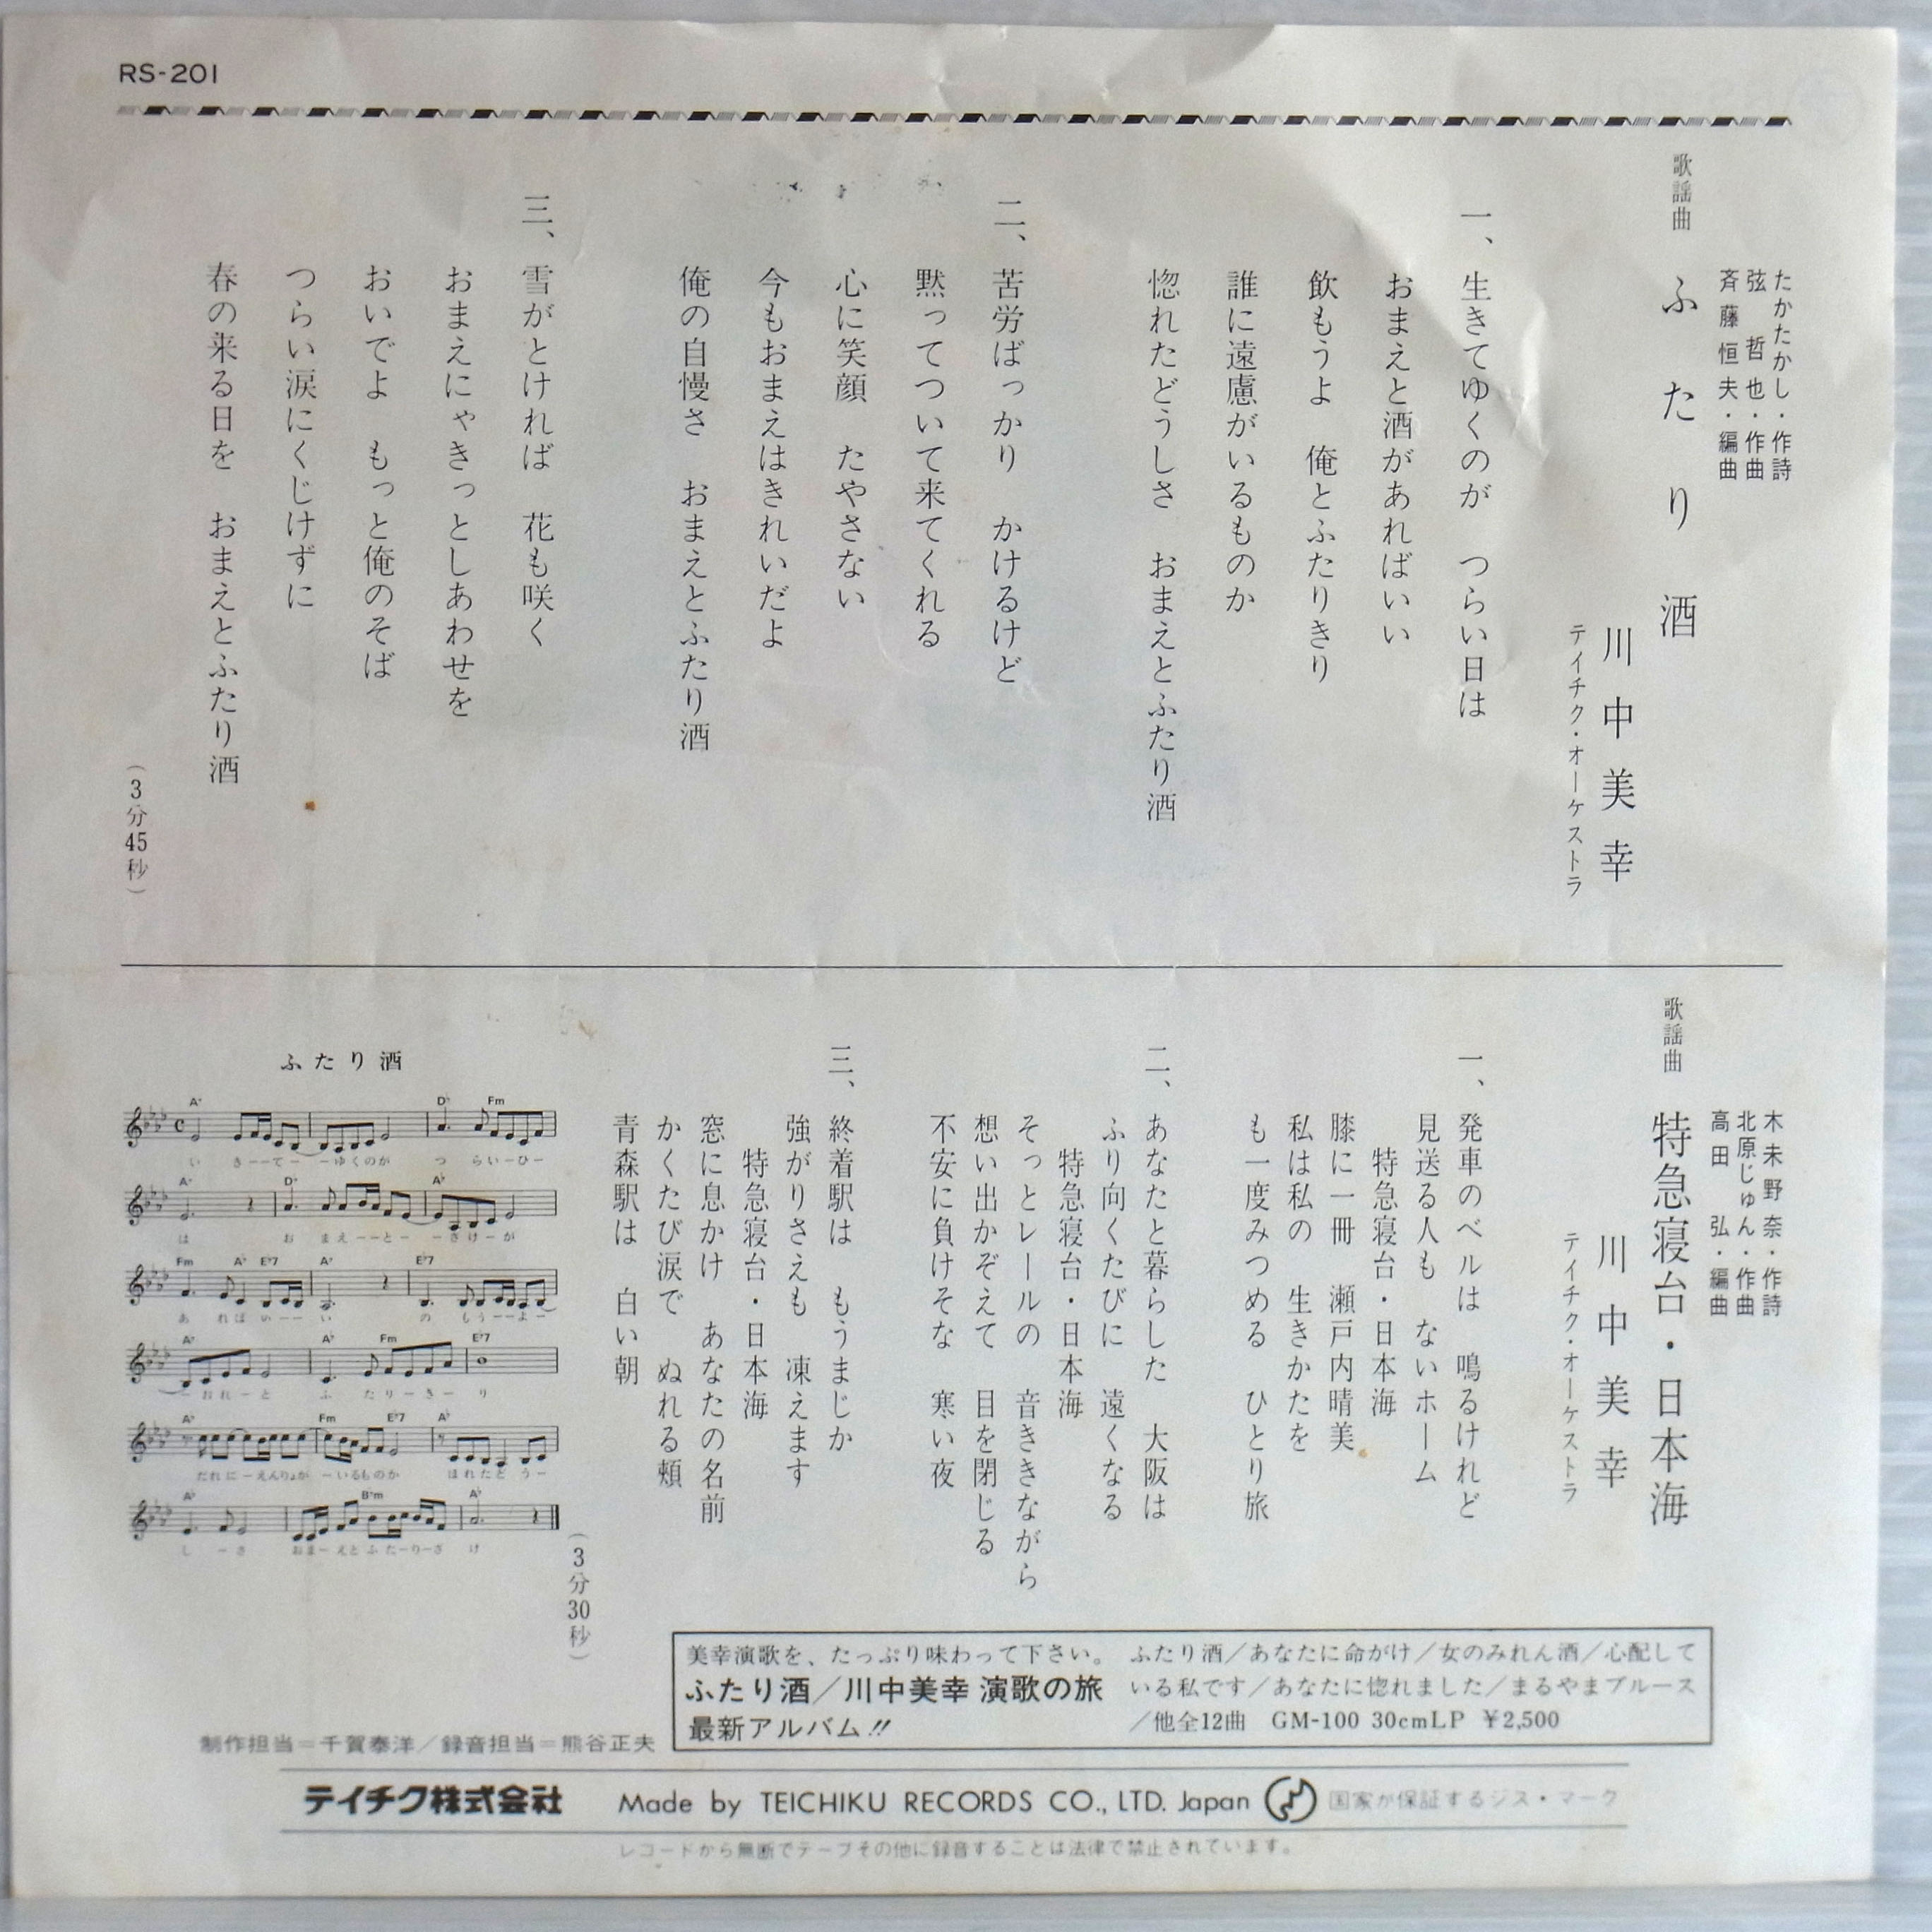 RS-201
歌謡曲
たかたかし・作詩
弦 哲也・作曲
斉藤恒夫・編曲
ふたり酒
川中美幸
テイチク・オーケストラ
一、生きてゆくのが つらい日は
おまえと酒があればいい
飲もうよ 俺とふたりきり
誰に遠慮がいるものか
惚れたどうしさ おまえとふたり酒
二、苦労ばっかり かけるけど
黙ってついて来てくれる
心に笑顔 たやさない
今もおまえはきれいだよ
俺の自慢さ おまえとふたり酒
三、雪がとければ 花も咲く
おまえにゃきっとしあわせを
おいでよ もっと俺のそば
つらい涙にくじけずに
春の来る日を おまえとふたり酒
(3分45秒)
歌謡曲
木未野奈・作詩
北原じゅん・作曲
高田 弘・編曲
特急寝台・日本海
川中美幸
テイチク・オーケストラ
一、発車のベルは 鳴るけれど
見送る人も ないホーム
特急寝台・日本海
膝に一冊 瀬戸内晴美
私は私の 生きかたを
も一度みつめる ひとり旅
二、あなたと暮らした 大阪は
ふり向くたびに 遠くなる
特急寝台・日本海
そっとレールの 音ききながら
想い出かぞえて 目を閉じる
不安に負けそな 寒い夜
三、終着駅は もうまじか
強がりさえも 凍えます
特急寝台・日本海
窓に息かけ あなたの名前
かくたび涙で ぬれる頬
青森駅は 白い朝
(3分30秒)
ふたり酒
A♭ D♭ Fm
い き--て- -ゆくのが つ らい-ひ-
A♭ D♭ A♭
は お まえ--と- -さけ-が
Fm A♭ E♭7 A♭ E♭7
あ ればい-- い の もう--よ-
A♭ A♭ Fm E♭7
-おれ-と ふ たり-き- り
A♭ Fm E♭7 A♭
だれに-えんりょが -いるものか ほれたど う-
A♭ B♭m A♭
し -さ おま-えとふた-り-ざ け
美幸演歌を、たっぷり味わって下さい。
ふたり酒／川中美幸 演歌の旅
最新アルバム!!
ふたり酒／あなたに命がけ／女のみれん酒／心配して
いる私です／あなたに惚れました／まるやまブルース
／他全12曲 GM-100 30cmLP ¥2,500
制作担当＝千賀泰洋／録音担当＝熊谷正夫
テイチク株式会社 Made by TEICHIKU RECORDS CO., LTD. Japan 国家が保証するジス・マーク
レコードから無断でテープその他に録音することは法律で禁止されています。